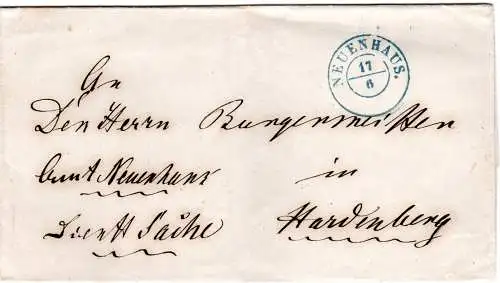 NEUENHAUS.
17
6
An
Den Herrn Burgermeister
Amt Neuenhaus in
Dienst Sache Hardenberg